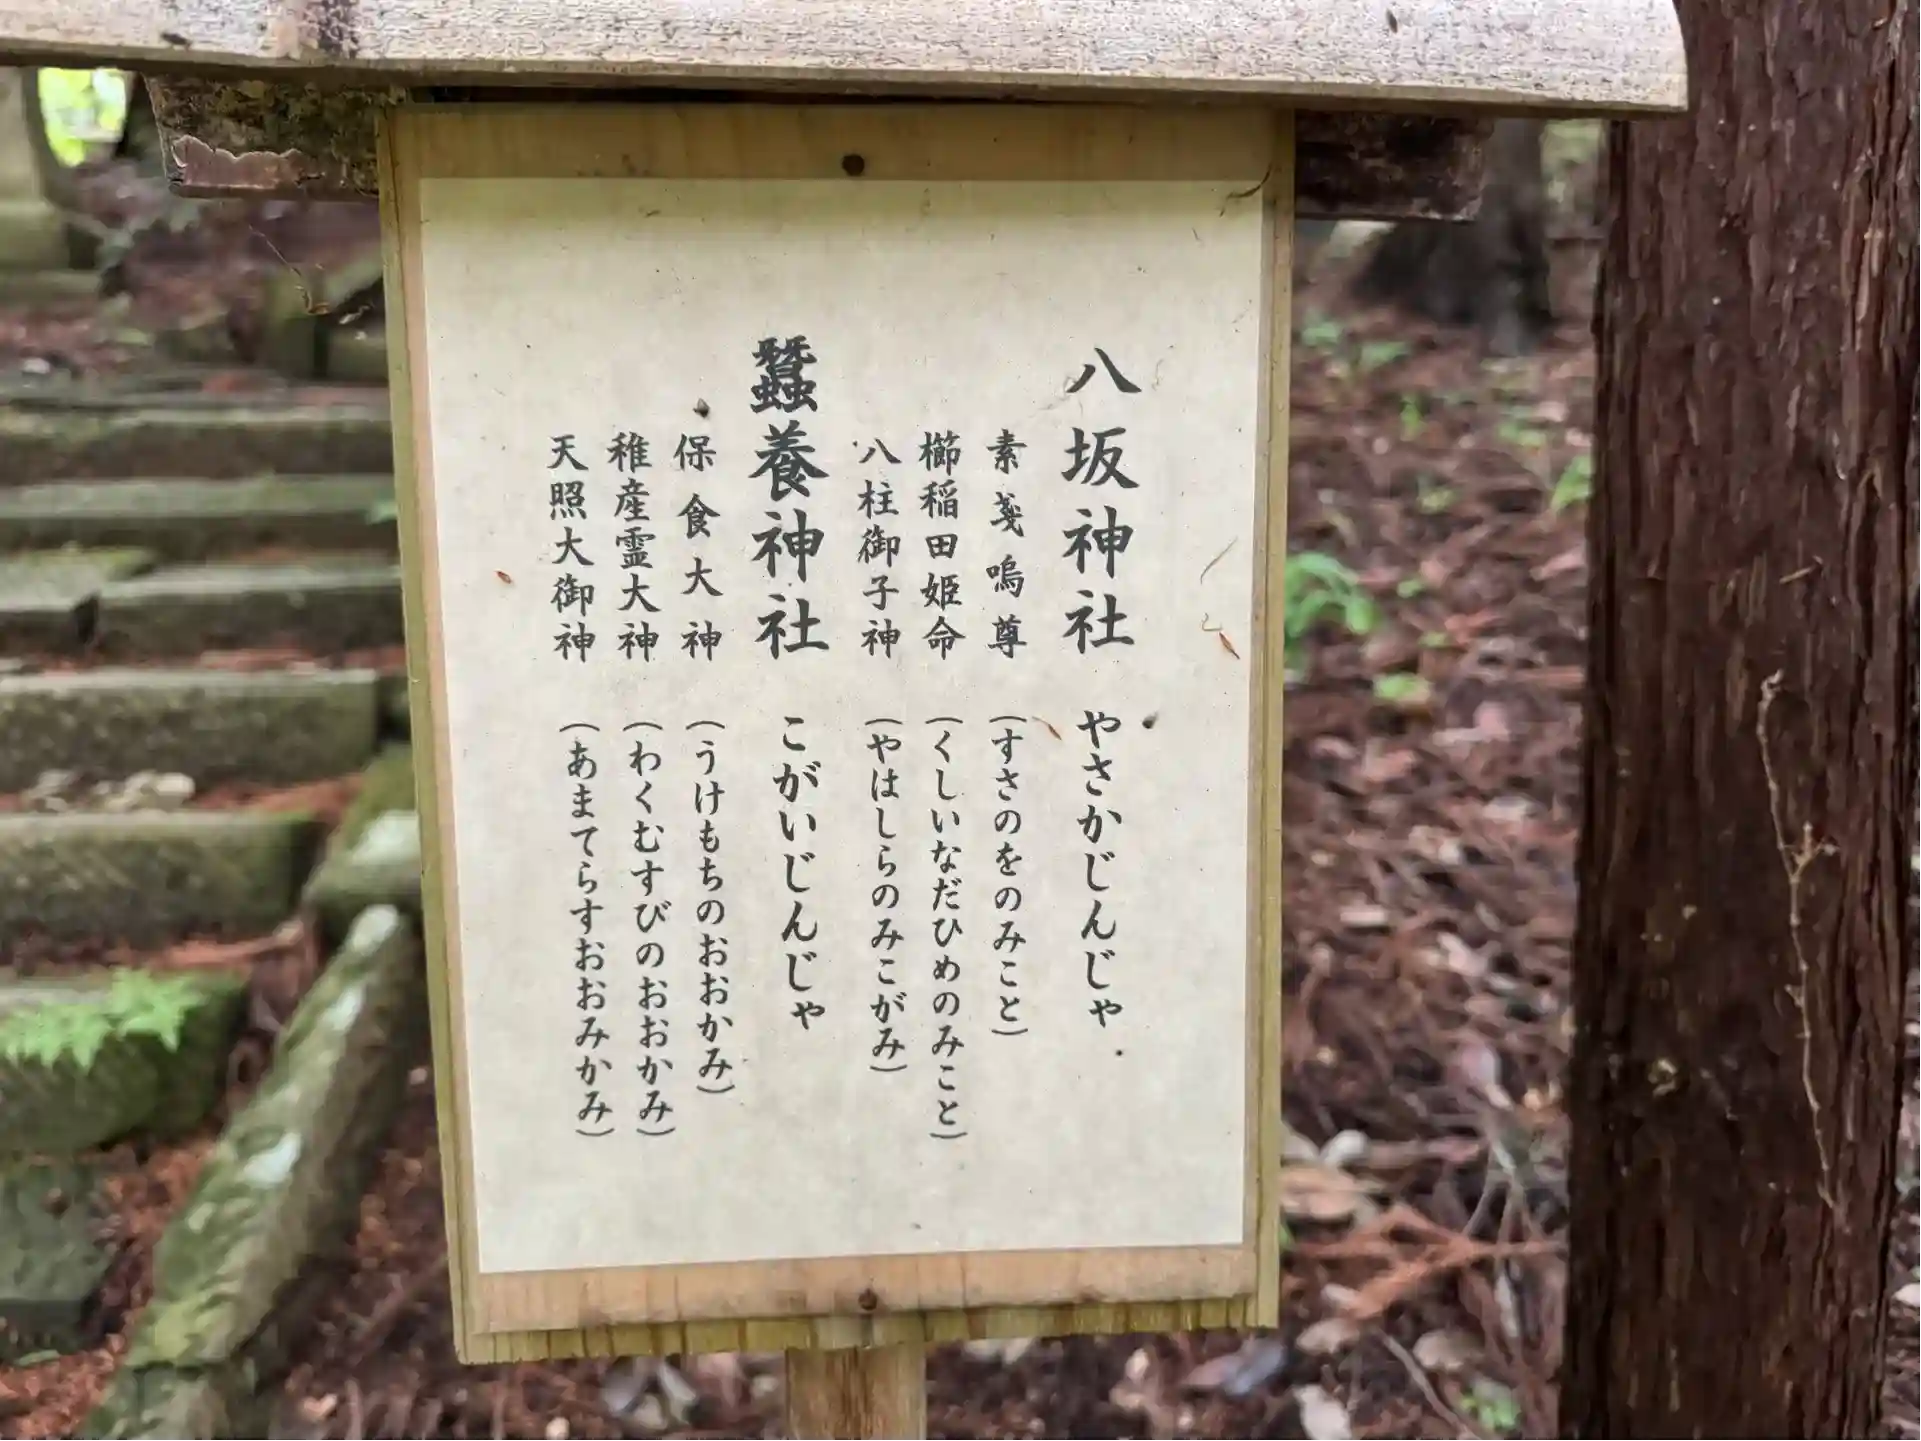 八坂神社 やさかじんじゃ
素戔嗚尊 (すさのをのみこと)
櫛稲田姫命 (くしいなだひめのみこと)
八柱御子神 (やはしらのみこがみ)
蠶養神社 こがいじんじゃ
保食大神 (うけもちのおおかみ)
稚産霊大神 (わくむすびのおおかみ)
天照大御神 (あまてらすおおみかみ)